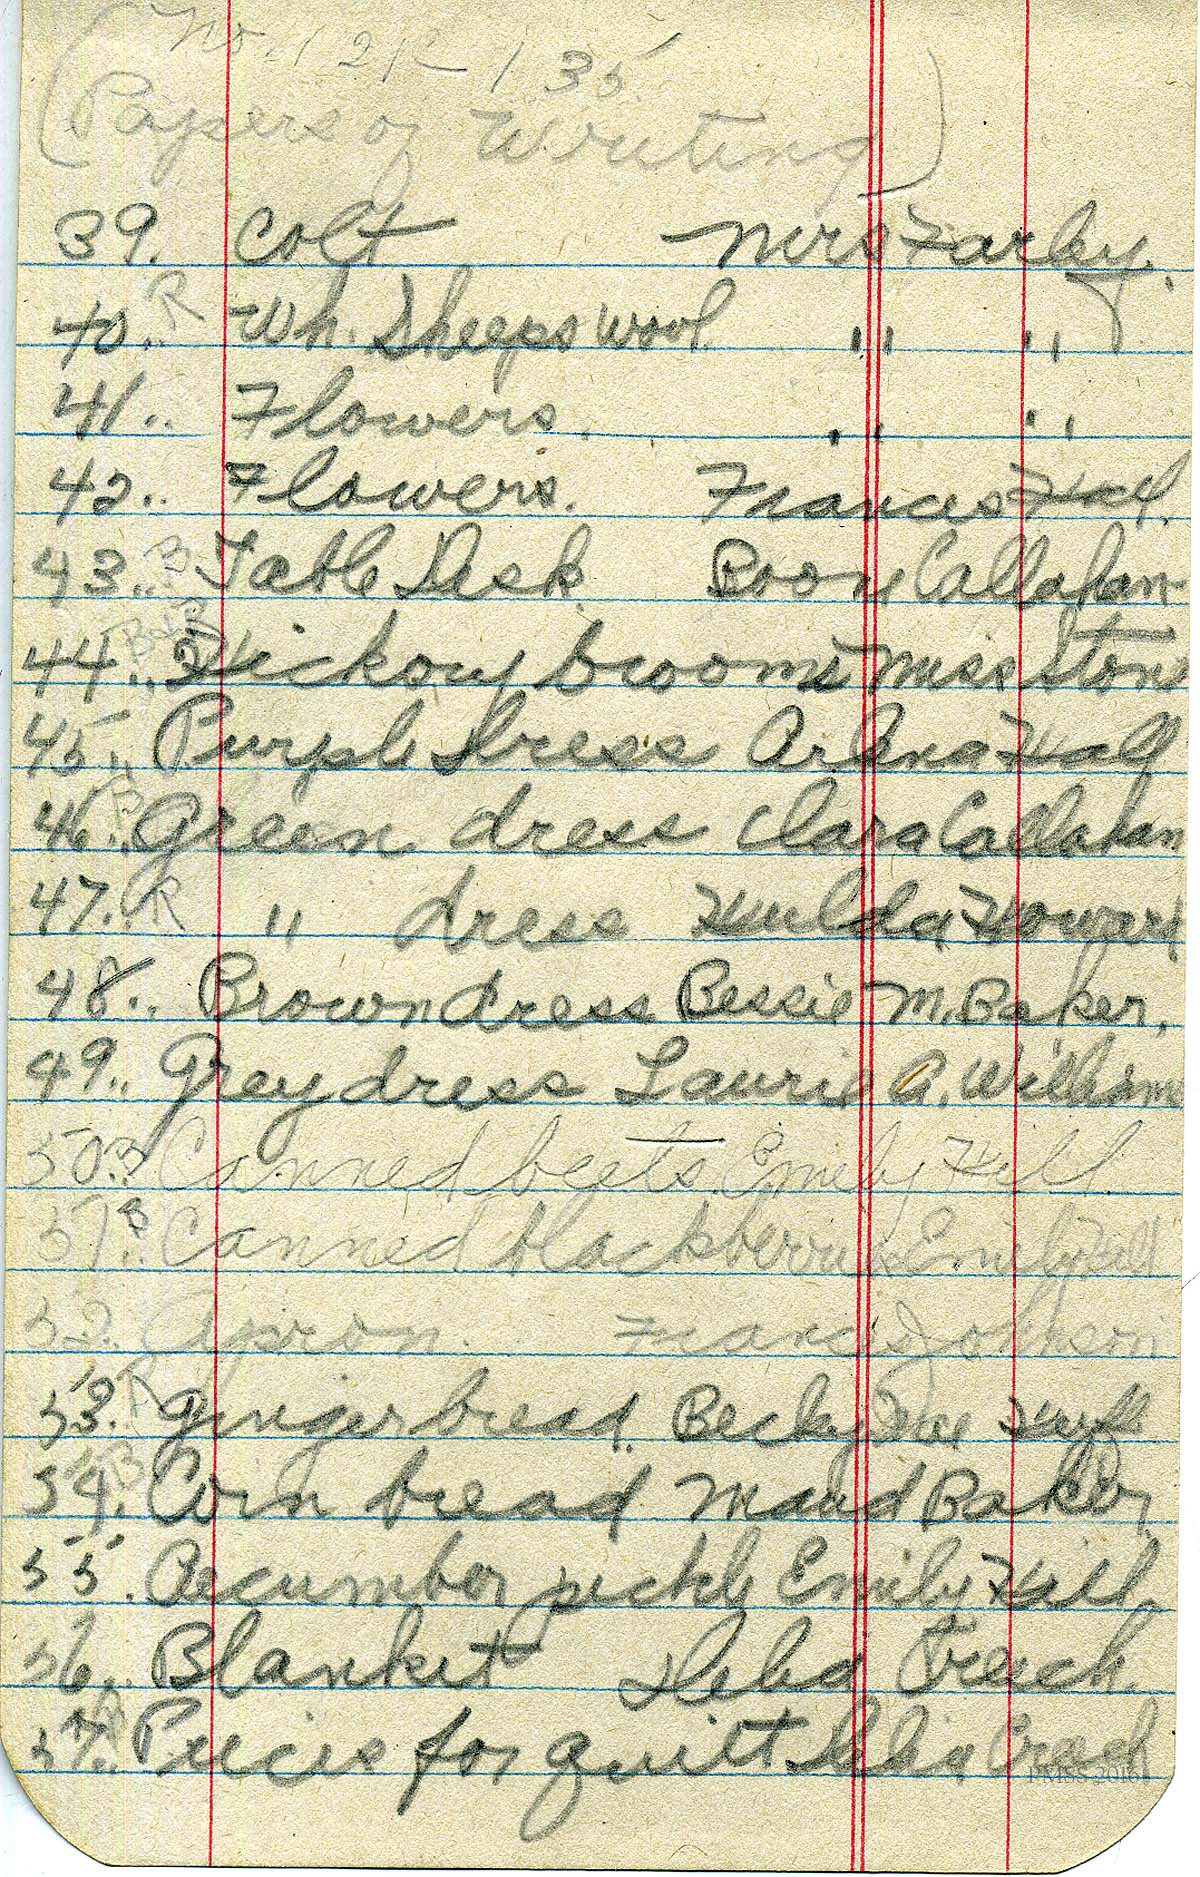 (Papers of Writing)
39. Colt Mrs Farley.
40.. R Wh. Sheeps wool " "
41.. Flowers. " "
42.. Flowers. Francis Hall.
43.. B Table Desk Boony Callahan
44.. Hickory brooms Miss Stone
45. Purple dress Arlena Hall
46. B Green dress Clara Callahan
47. R " dress Hulda Howard
48.. Brown dress Bessie M. Baker.
49.. Grey dress Laurie A. William
50. B Canned beets Emily Hill
51. B Canned blackberries Emily Hill
52. Apron. Francis Johnson
53. R Gingerbread. Becky Huff
54. B Corn bread Maud Baker
55. Cecumber pickle Emily Hill
56.. Blanket Delia Creech
57. Pieces for quilt Delia Creech
PMSS 2016